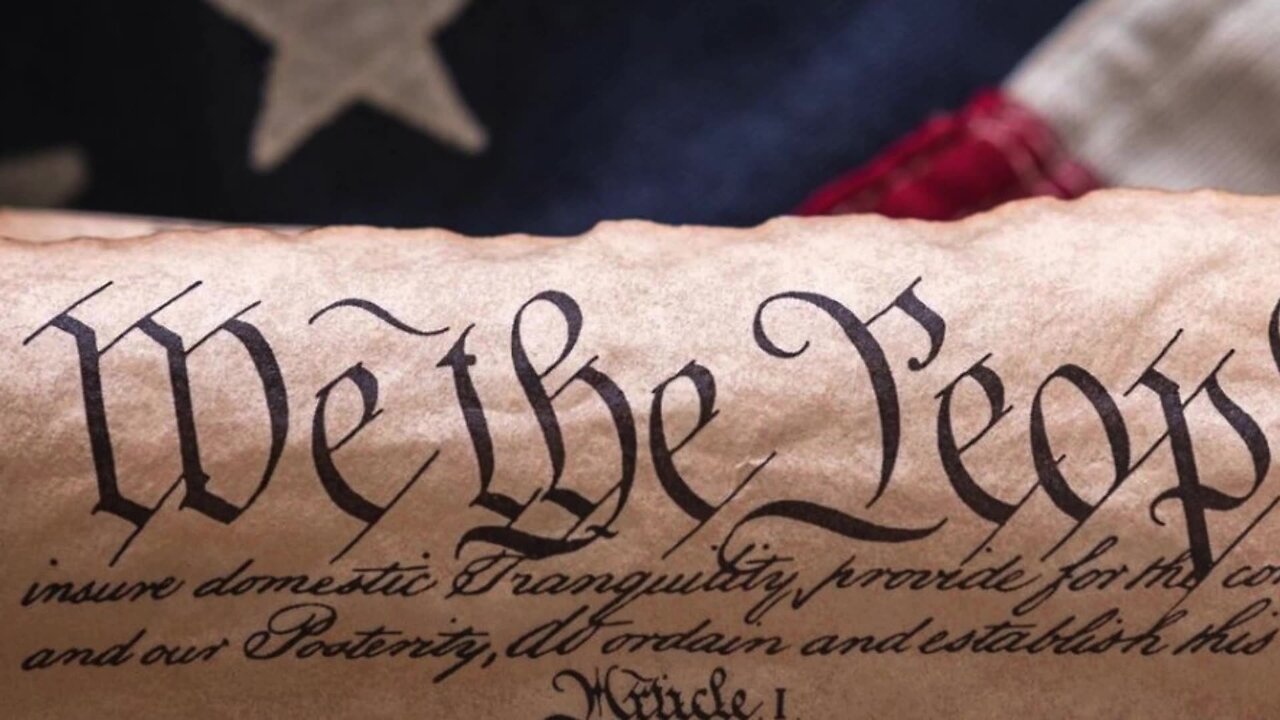 We the Peop
insure domestic Tranquility, provide for the co
and our Posterity, do ordain and establish this
Article. I